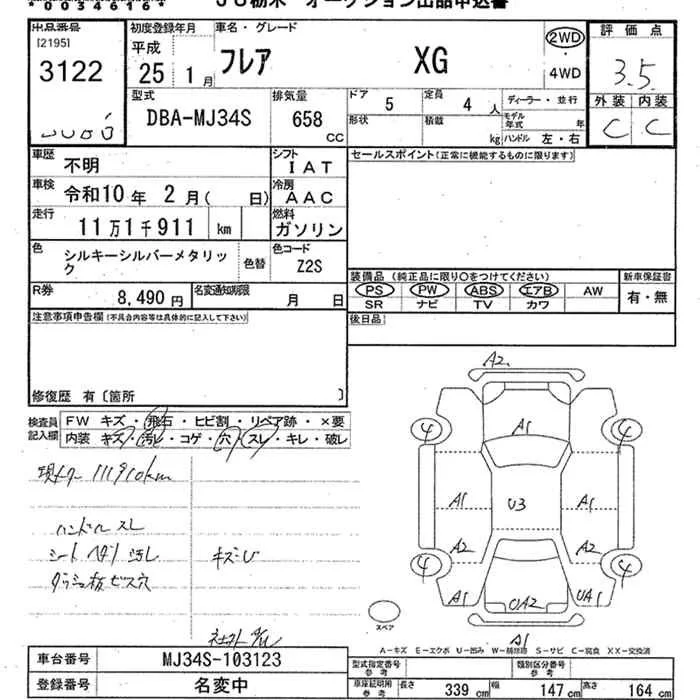 *00346161*
JU栃木 オークション出品申込書
出品番号 [2195] 3122
初度登録年月 平成 25年 1月
車名・グレード フレア XG
2WD ・ 4WD
評価点 3.5
外装 内装
C C
型式 DBA-MJ34S
排気量 658 CC
ドア 5 定員 4人
形状 積載 kg
ディーラー・並行
モデル年式 年
ハンドル 左・右
車歴 不明
シフト IAT
セールスポイント(正常に機能するものに限ります)
車検 令和10年 2月( 日)
冷房 AAC
走行 11万1千911 km
燃料 ガソリン
色 シルキーシルバーメタリック
色替
色コード Z2S
装備品 (純正品に限り○をつけてください)
新車保証書
PS PW ABS エアB AW
SR ナビ TV カワ
有・無
R券 8,490円
名変通知期限 月 日
後日品
注意事項申告欄 (不具合内容等は具体的に記入して下さい)
修復歴 有〔箇所 〕
検査員記入欄
FW キズ・飛石・ヒビ割・リペア跡・×要
内装 キズ・汚レ・コゲ・穴・スレ・キレ・破レ
現メーター 111910km
ハンドル スレ
シート 汚レ
キズU
ダッシュ板ビス穴
A2
A1
4 4
A1 U3 A1
A2 A2
4 4
A1 UA2 UA1
A1
スペア
A-キズ E-エクボ U-凹み W-補修跡 S-サビ C-腐食 XX-交換済
車台番号 MJ34S-103123
登録番号 名変中
型式指定番号 参考
類別区分番号 参考
車庫証明用 参考 長さ 339 cm 幅 147 cm 高さ 164 cm